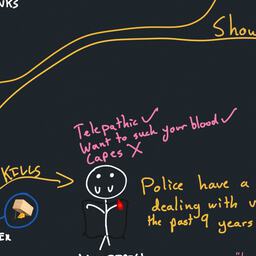 Show
Telepathic ✓
Want to suck your blood ✓
Capes X
KILLS
Police have a
dealing with
the past 9 years